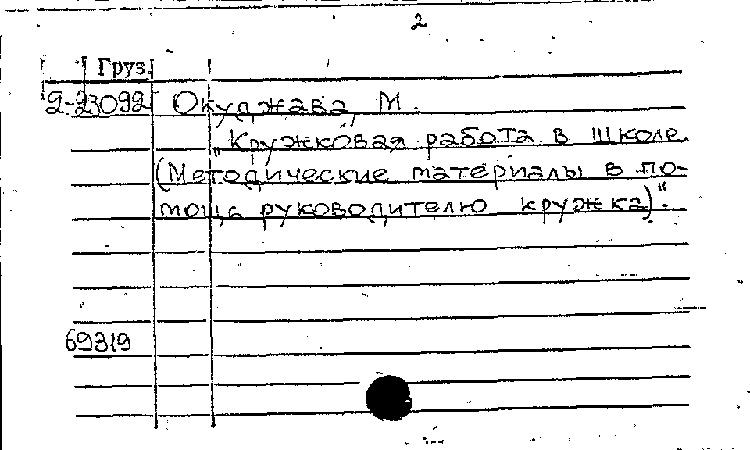 2
Груз.
2-23092 Окуджава, М.
"Кружковая работа в школе
(Методические материалы в по-
мощь руководителю кружка)".
69319